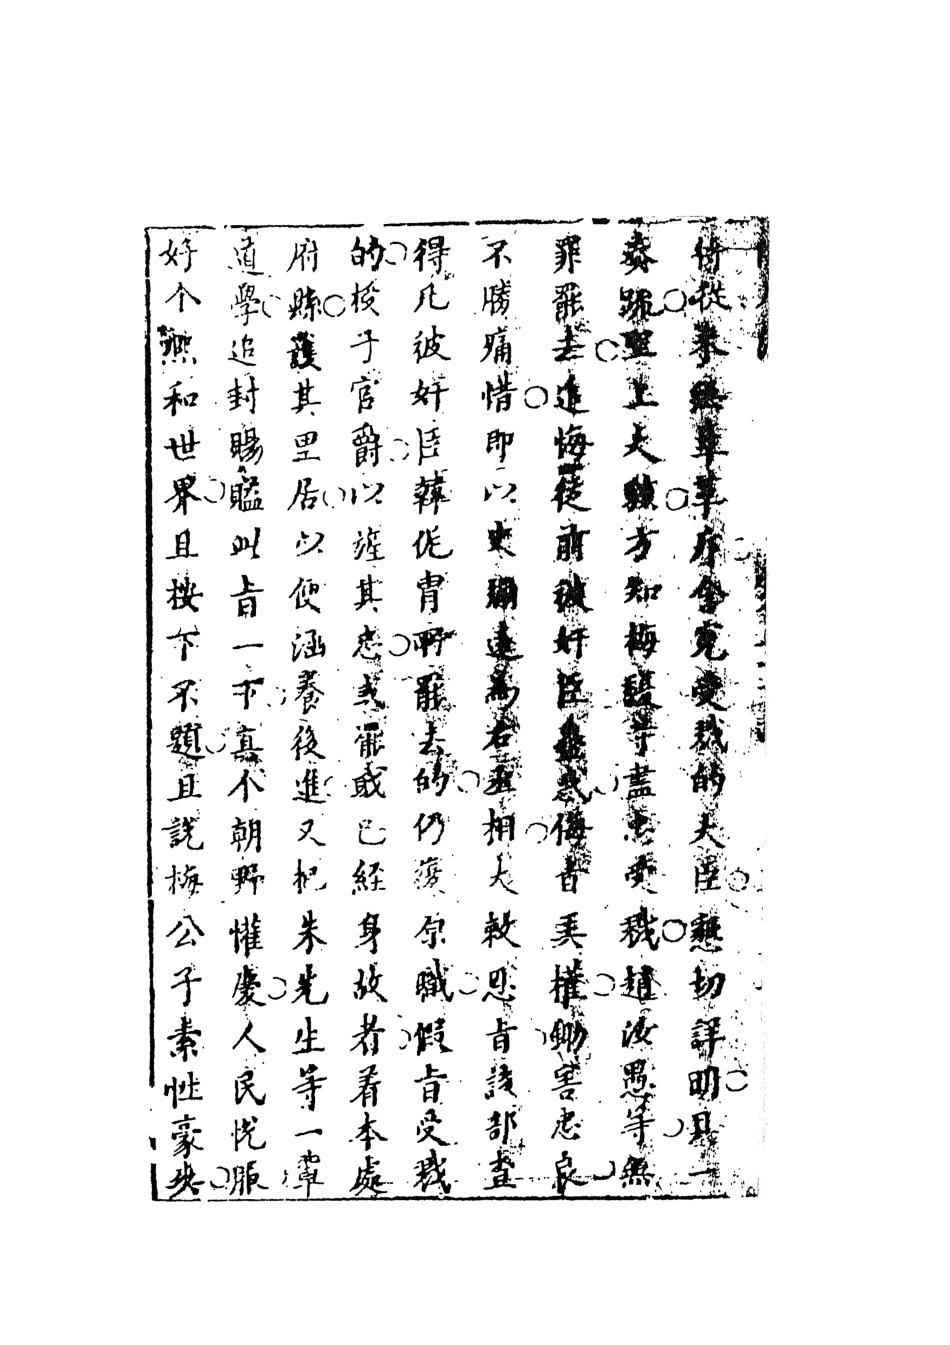 侍從参無辜革斥含冤受戕的大臣懇切詳明具一
奏踈聖上大駭方知梅馥等盡忠受戕趙汝愚等無
罪罷去追悔從前被奸臣蠱惑侮旨弄權鋤害忠良
不勝痛惜即以史彌遠為右丞相大赦恩旨該部查
得凡彼奸臣韓侂胄所罷去的仍復原職假旨受戕
的授子官爵以旌其忠或罷或已經身故者着本處
府縣護其里居以便涵養後進又把朱先生等一軰
道學追封賜謚此旨一下真个朝野懽慶人民悅服
好个熈和世界且按下不題且說梅公子素性豪爽